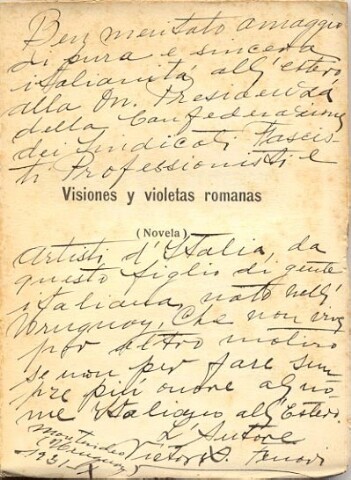 Ben meritato omaggio
di pura e sincera
italianitá all'estero,
alla On. Presidenza
della Confederazione
dei Sindicati Fascis-
ti Professionisti e
Visiones y violetas romanas
(Novela)
Artisti d'Italia, da
questo figlio di gente
italiana, nato nell'
Uruguay, che non vive
por altro motivo
se non per fare sem
pre piú onore al no
me Italiano all'Estero.
L'Autore
Montevideo
(Uruguay)
1931